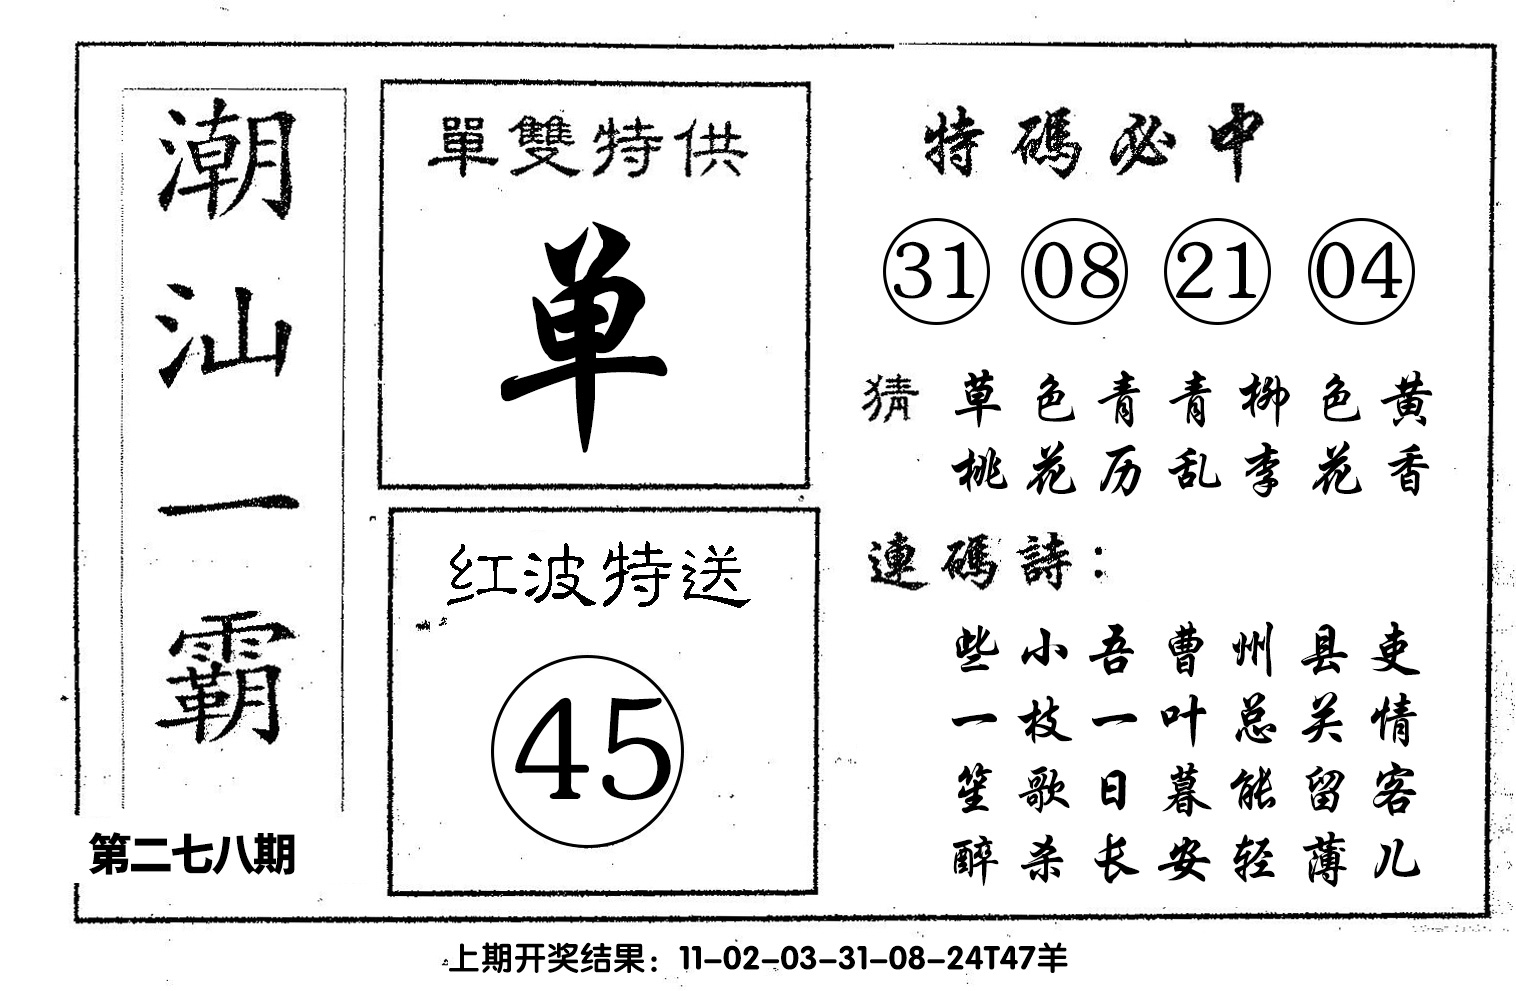 潮汕一霸
第二七八期
單雙特供
单
红波特送
45
特碼必中
31 08 21 04
猜 草色青青柳色黄
桃花历乱李花香
連碼詩：
些小吾曹州县吏
一枝一叶总关情
笙歌日暮能留客
醉杀长安轻薄儿
上期开奖结果：11-02-03-31-08-24T47羊